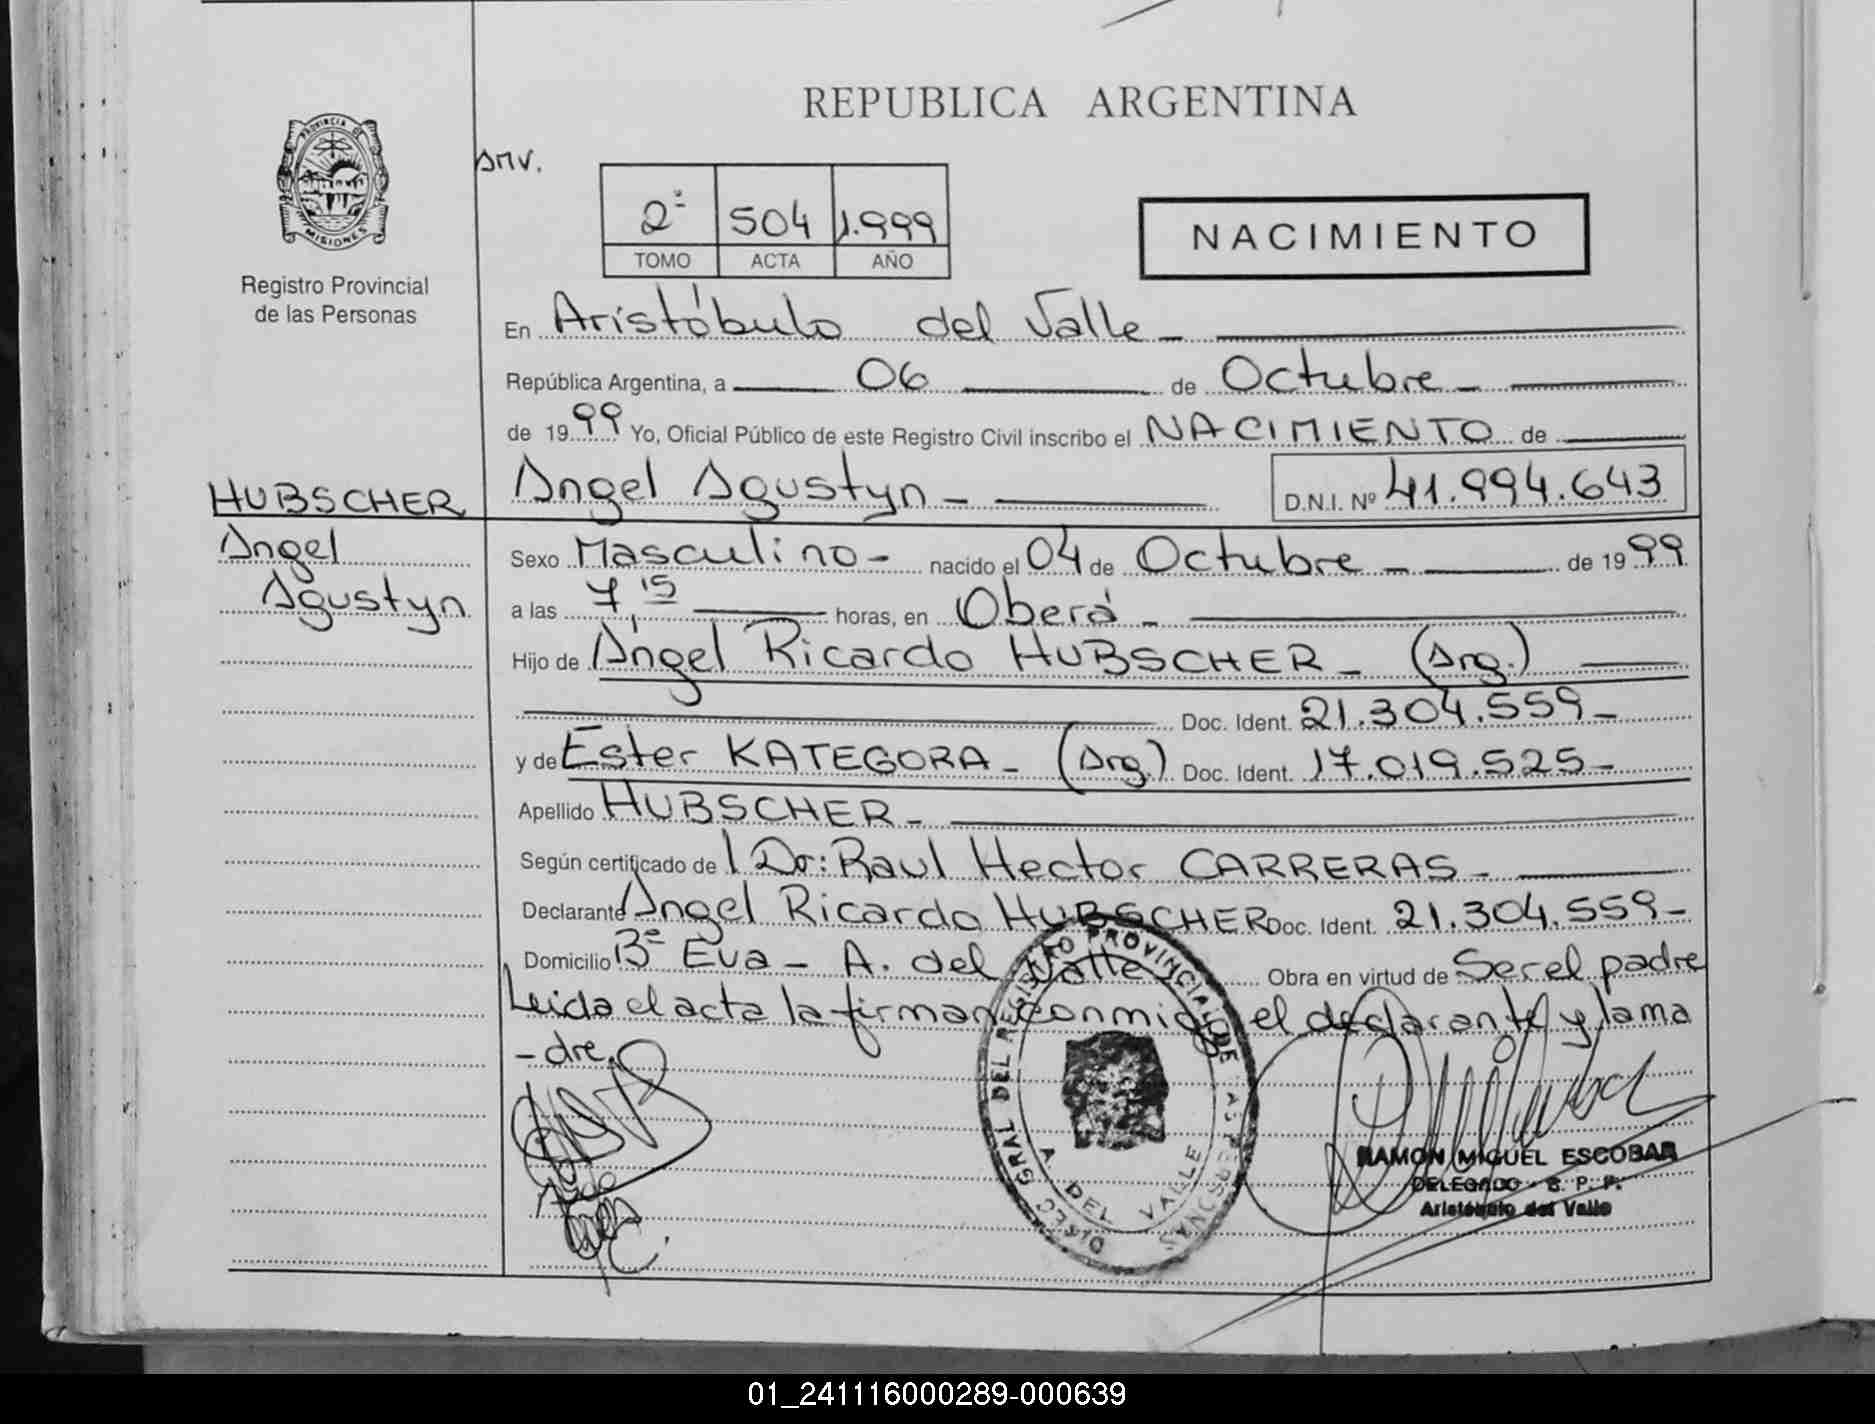 REPUBLICA ARGENTINA
PROVINCIA DE MISIONES
Registro Provincial
de las Personas
AMV.
2º 504 1.999
TOMO ACTA AÑO
NACIMIENTO
En Aristóbulo del Valle
República Argentina, a 06 de Octubre
de 1999 Yo, Oficial Público de este Registro Civil inscribo el NACIMIENTO de
HUBSCHER
Angel
Agustyn
Angel Agustyn D.N.I. Nº 41.994.643
Sexo Masculino nacido el 04 de Octubre de 1999
a las 7,15 horas, en Oberá
Hijo de Angel Ricardo HUBSCHER (Arg.)
Doc. Ident. 21.304.559
y de Ester KATEGORA (Arg.) Doc. Ident. 17.019.525
Apellido HUBSCHER
Según certificado de Dr: Raul Hector CARRERAS
Declarante Angel Ricardo HUBSCHER Doc. Ident. 21.304.559
Domicilio Bº Eva - A. del Valle Obra en virtud de Ser el padre
Leida el acta la firman conmigo el declarante y la ma
- dre
DIREC GRAL DEL REGISTRO PROVINCIAL DE LAS PERSONAS
A. DEL VALLE
RAMON MIGUEL ESCOBAR
DELEGADO - R. P. P.
Aristóbulo del Valle
01_241116000289-000639